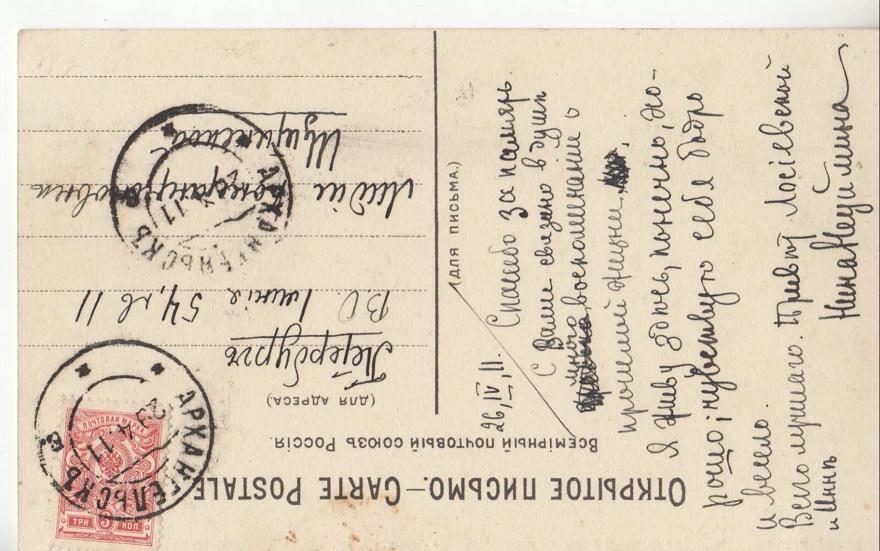 ОТКРЫТОЕ ПИСЬМО.—CARTE POSTALE
ВСЕМІРНЫЙ ПОЧТОВЫЙ СОЮЗЪ РОССІЯ.
(ДЛЯ АДРЕСА)
Петербургъ
ВО 1 линія 54, кв 11
Лидіи
Щуцинской
(ДЛЯ ПИСЬМА.)
26, IV, 11. Спасибо за память.
С Вами связано в душѣ
много воспоминание о
прошлой жизни.
Я живу здѣсь, конечно, хо-
рошо; чувствую себя бодро
и весело.
Всего лучшаго. Привѣт Лосіевской
и Нинѣ
Нина
АРХАНГЕЛЬСКЪ
АРХАНГЕЛЬСКЪ
ПОЧТОВАЯ МАРКА
ТРИ 3 КОП.